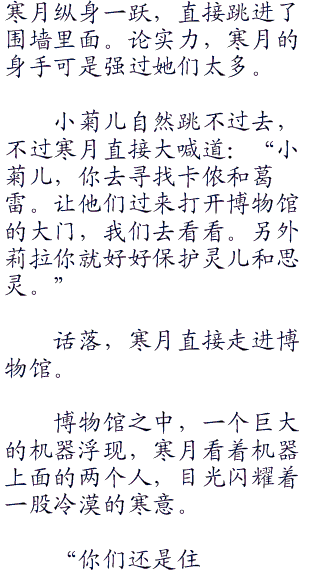 寒月纵身一跃，直接跳进了
围墙里面。论实力，寒月的
身手可是强过她们太多。
小菊儿自然跳不过去，
不过寒月直接大喊道：“小
菊儿，你去寻找卡侬和葛
雷。让他们过来打开博物馆
的大门，我们去看看。另外
莉拉你就好好保护灵儿和思
灵。”
话落，寒月直接走进博
物馆。
博物馆之中，一个巨大
的机器浮现，寒月看着机器
上面的两个人，目光闪耀着
一股冷漠的寒意。
“你们还是住